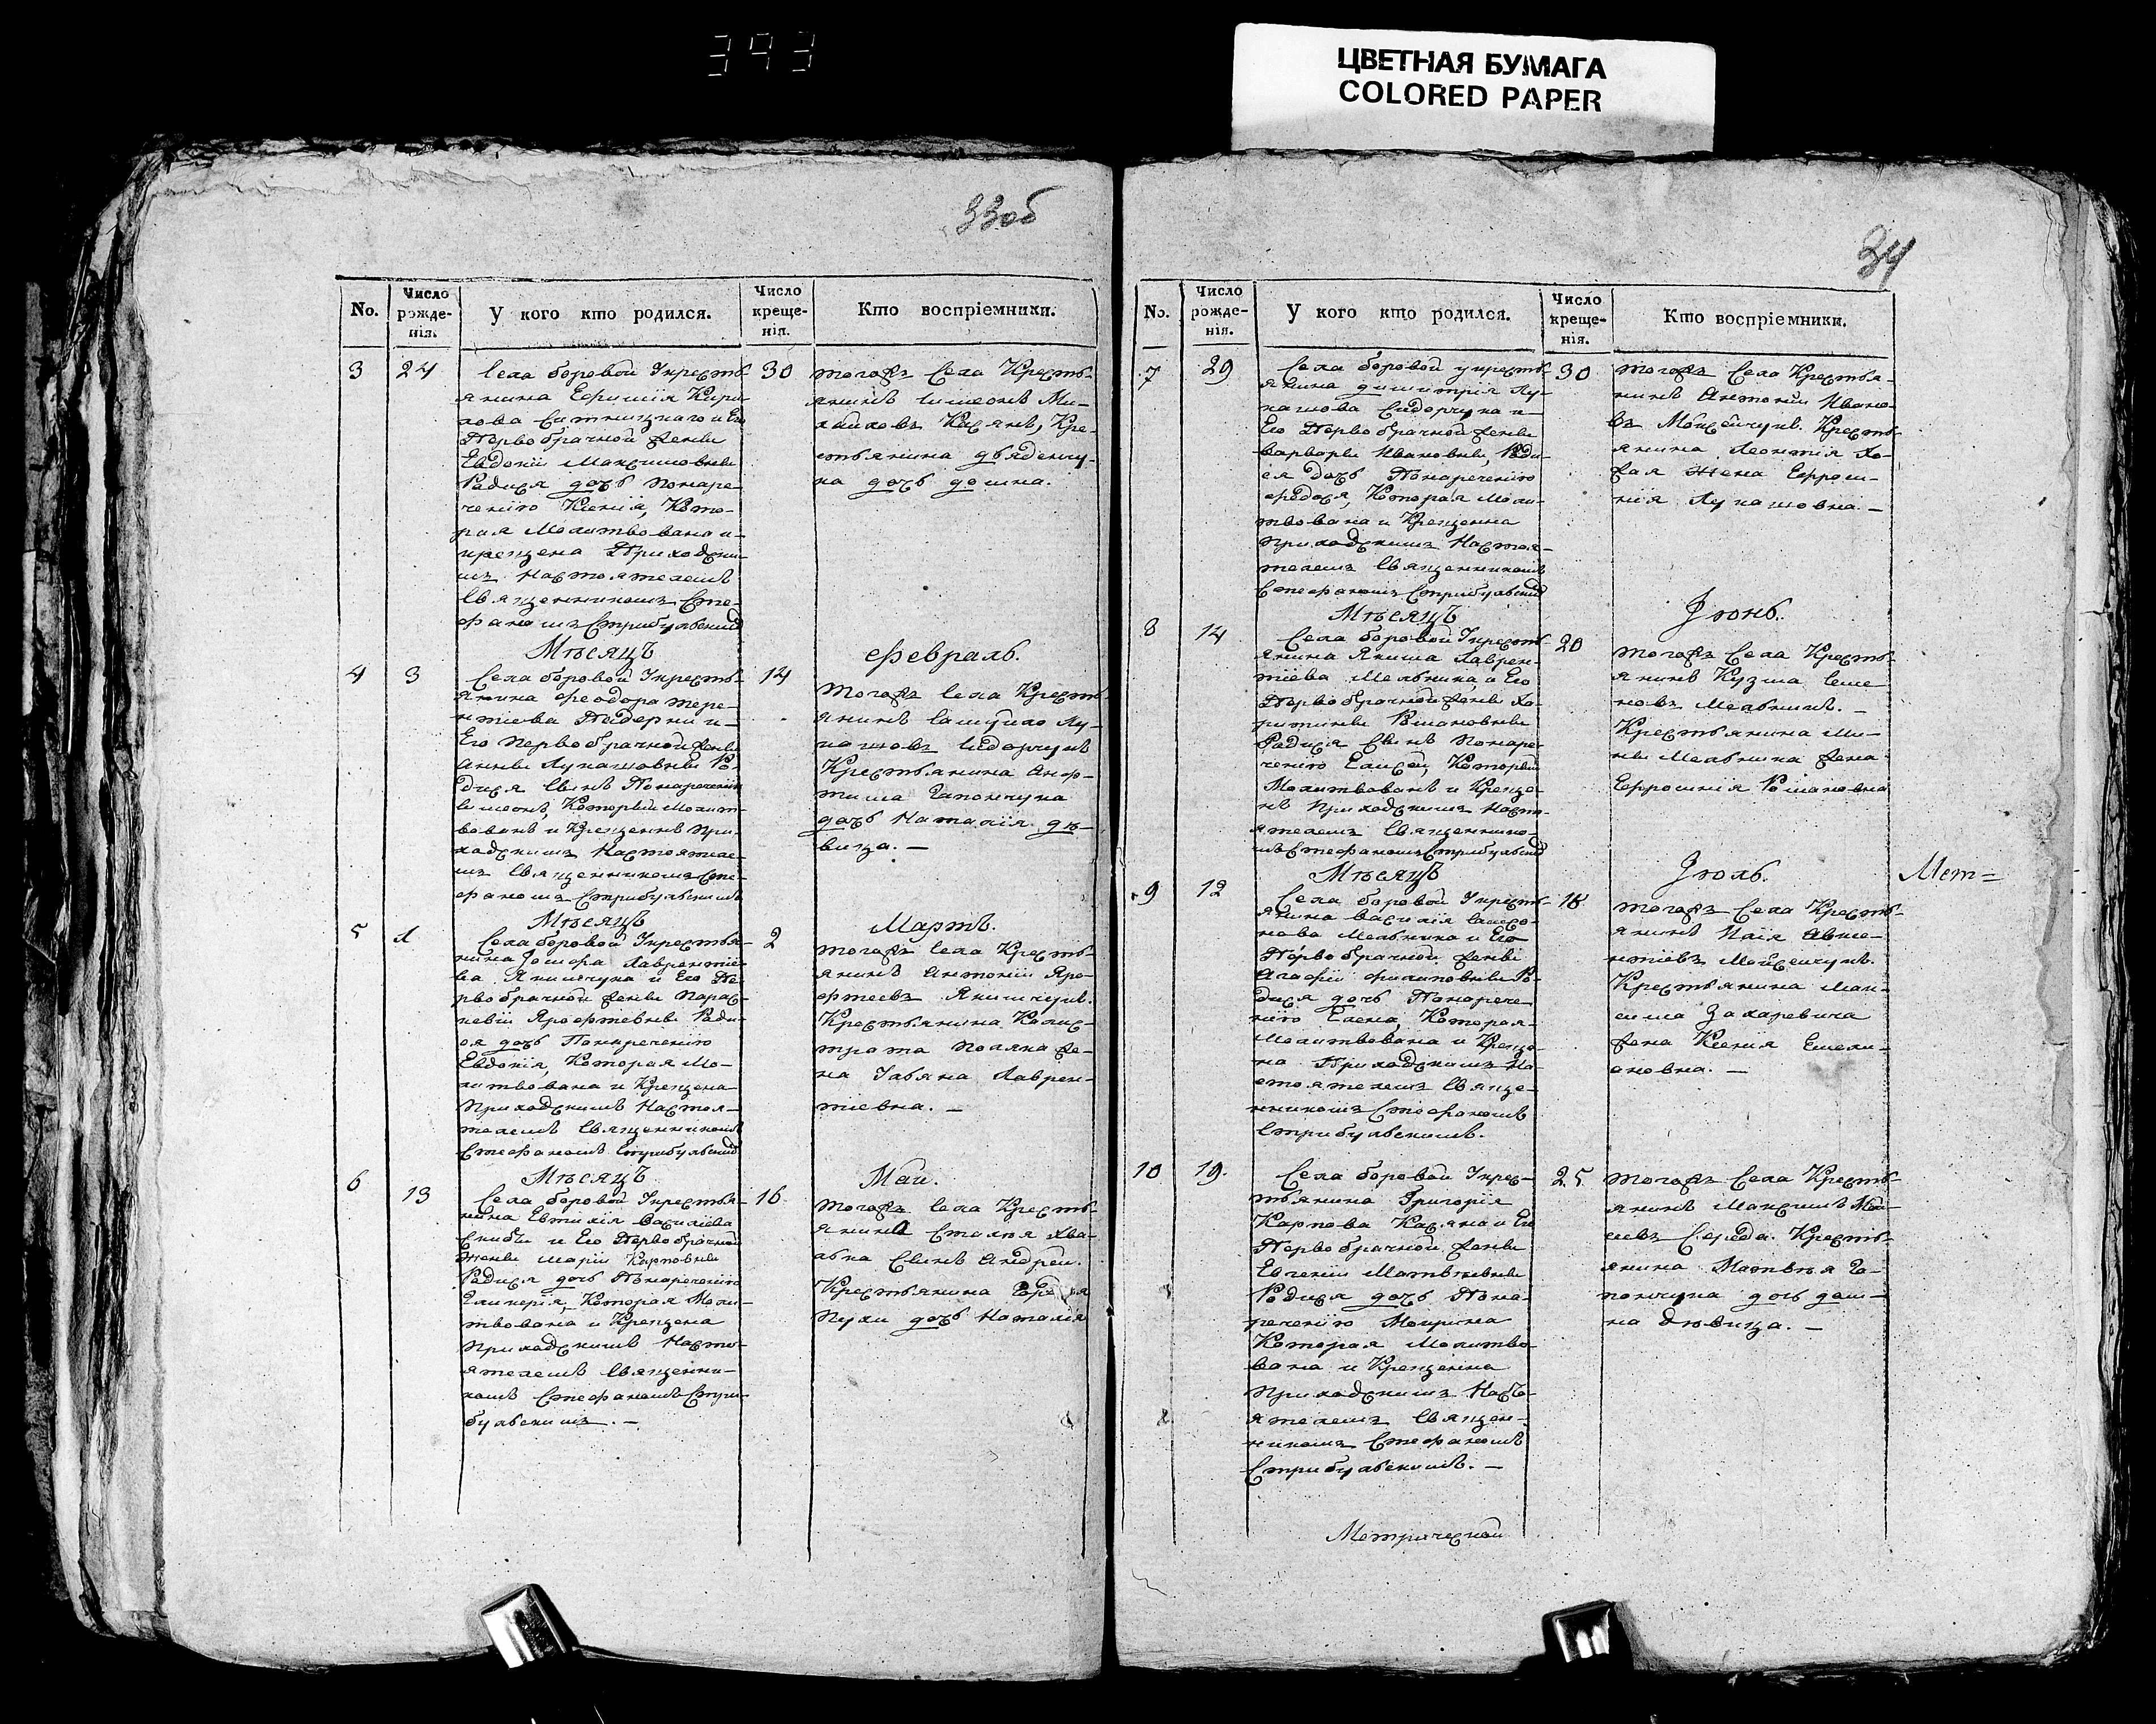 393
ЦВЕТНАЯ БУМАГА
COLORED PAPER
33об
No.
Число рожденія.
У кого кто родился.
Число крещенія.
Кто воспріемники.
3
24
Села боровой Укресть-
янина Ефимія Кири-
лова Ситницкаго и Его
Первобрачной жены
Евдокіи Максимовны
Радися дочь Понаре-
ченію Ксенія, Кото-
рая Молитвована и-
крещена Приходски-
мъ Настоятелемъ
Священникомъ Сте-
фаномъ Стрибульским
30
тогожъ Села Кресть-
янинъ Симеонъ Ми-
хайловъ Касянъ, Кре-
стьянина дѣденчу-
ка дочь домна.
Мѣсяцъ
Февраль.
4
3
Села боровой Укресть-
янина Феодора тере-
нтіева и-
Его первобрачной жены
Анны Лукашовны Ро-
дися Сынъ Понареченію
Симеонъ, Который молит-
вованъ и Крещеннъ при-
ходскимъ Настоятеле-
мъ Священникомъ Сте-
фаномъ Стрибульскимъ
14
тогожъ Села Кресть-
янинъ Самуйло Лу-
кашовъ Сидорчукъ
Крестьянина Анф-
тима Гапончука
дочь Наталія дѣ-
вица. —
Мѣсяцъ
Мартъ.
5
1
Села боровой Укрестья-
нина Іосифа Лаврентіе-
ва Якимчука и Его Пе-
рвобрачной жены Парас-
кевіи Ярофтевны Роди-
ся дочь Понареченію
Евдокія, Которая Мо-
литвована и Крещена
Приходскимъ Настоя-
телемъ Священникомъ
Стефаномъ Стрибульским
2
тогожъ Села Кресть-
янинъ Антоній Яро-
фтеевъ Якимчукъ.
Крестьянина Калис-
трата Поляка же-
на Улвяна Лаврен-
тіевна. —
Мѣсяцъ
Май.
6
13
Села боровой Укрестья-
нина Евтихія Василіева
Скибы и Его Первобрачной
жены маріи Карповны
Радися дочь Понареченію
Гликерія, Которая Моли-
твована и Крещена
приходскимъ Насто-
ятелемъ Священни-
комъ Стефаномъ Стри-
бульскимъ. —
16
тогожъ Села Кресть-
янина Стахея Хва-
лька Сынъ Андрей.
Крестьянина
дочь Наталія
34
No.
Число рожденія.
У кого кто родился.
Число крещенія.
Кто воспріемники.
7
29
Села боровой укресть-
янина димитрія Лу-
кашова Сидорчука и-
Его Первобрачной жены
варвары Ивановны, Роди-
ся дочь Понареченію
федося, Которая Моли-
твована и Крещенна
приходскимъ Настоя-
телемъ Священникомъ
Стефаномъ Стрибульским
30
тогожъ Села Крестья-
нинъ Антоній Ивано-
въ Мойсейчукъ. Кресть-
янина Леонтія
жена Ефроси-
нія Лукашовна. —
Мѣсяцъ
Іюнь.
8
14
Села боровой Укресть-
янина Якима Лаврен-
тіева Мельника, и Его
Первобрачной жены Ха-
ритины Романовны
Радися Сынъ Понаре-
ченію Елисей, Который
Молитвованъ и Креще-
нъ приходскимъ Насто-
ятелемъ Священнико-
мъ Стефаномъ Стрибульским
20
тогожъ Села Кресть-
янинъ Кузма Семе-
новъ Мельникъ. —
Крестьянина Ми-
ны Мельника жена
Ефросинія Романовна
Мѣсяцъ
Іюль.
Мет=
9
12
Села боровой Укресть-
янина василія
Мельника и Его
Первобрачной жены
Агафіи филиповны Ро-
дися дочь Понарече-
нію Елена, Которая-
Молитвована и Креще-
на Приходскимъ На-
стоятелемъ Священ-
нникомъ Стефаномъ
Стрибульскимъ.
18
тогожъ Села Кресть-
янинъ Авкс-
нтіевъ Мойсейчукъ.
Крестьянина Мак-
сима Захаревича
жена Ксенія Емели-
ановна. —
10
19.
Села боровой Укрес-
тьянина Григорія
Карпова Касяна и Его
Первобрачной жены
Евгеніи Матвѣевны
Родися дочь Пона-
реченію Макрина
Которая Молитво-
вана и Крещенна
приходскимъ Насто-
ятелемъ Священ-
никомъ Стефаномъ
Стрибульскимъ. —
25
тогожъ Села Кресть-
янинъ Максимъ
Середа. Кресть-
янина Матвѣя Га-
пончука дочь дом-
на дѣвица. —
Метрической